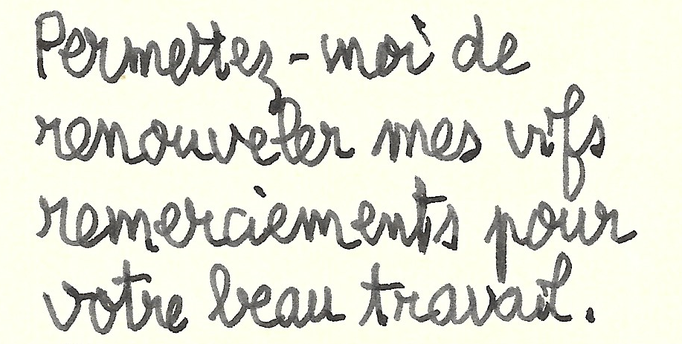 Permettez-moi de
renouveler mes vifs
remerciements pour
votre beau travail.